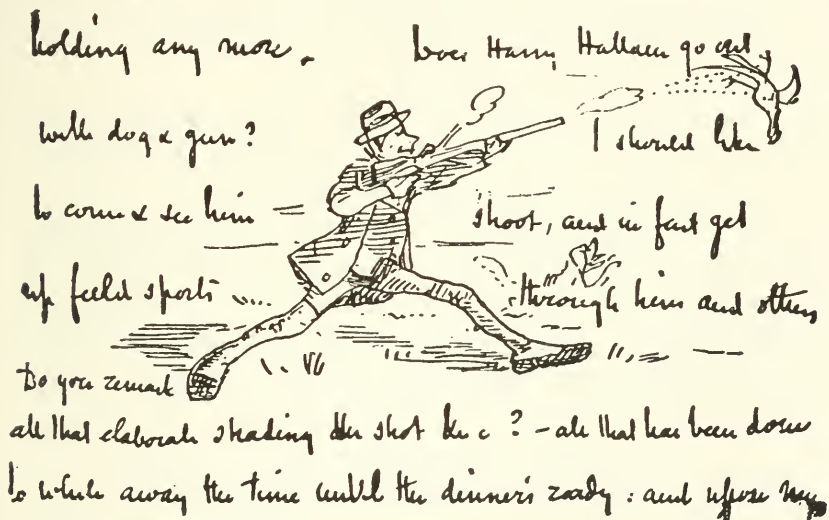 holding any more. Does Harry Hallam go out
with dog & gun? I should like
to come & see him — shoot, and in fact get
up feeld sports through him and others
Do you remark
all that elaborate shading the shot &c? — all that has been done
to while away the time until the dinner's ready: and upose my